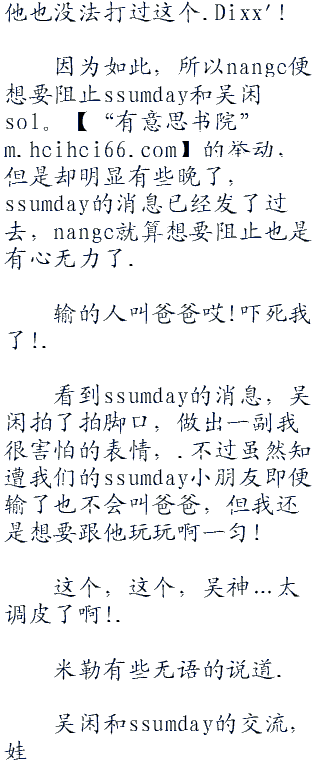 他也没法打过这个.Dixx'!
因为如此，所以nangc便
想要阻止ssumday和吴闲
sol。【 “有意思书院”
m.hcihci66.com】的举动，
但是却明显有些晚了，
ssumday的消息已经发了过
去，nangc就算想要阻止也是
有心无力了.
输的人叫爸爸哎!吓死我
了!.
看到ssumday的消息，吴
闲拍了拍脚口，做出一副我
很害怕的表情，.不过虽然知
遭我们的ssumday小朋友即便
输了也不会叫爸爸，但我还
是想要跟他玩玩啊一匀!
这个，这个，吴神…太
调皮了啊!.
米勒有些无语的说道.
吴闲和ssumday的交流，
娃